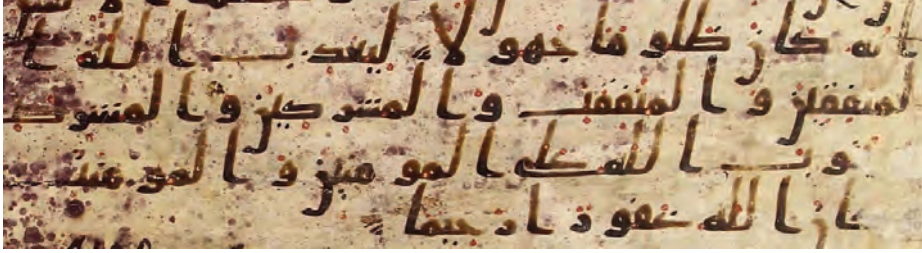 انه كان ظلوما جهولا ليعذب الله ا
لمنفقين و المنفقت و المشركين و المشركت
و يتوب الله على المومنين و المومنت
و كان الله غفورا رحيما